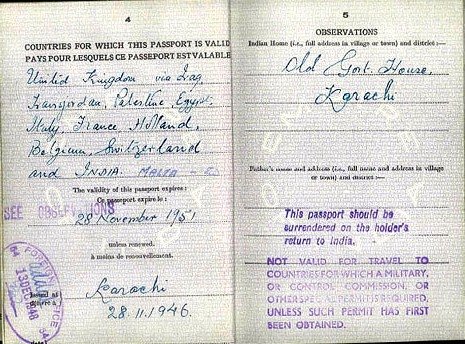 4
COUNTRIES FOR WHICH THIS PASSPORT IS VALID
PAYS POUR LESQUELS CE PASSEPORT EST VALABLE
United Kingdom via Iraq,
Transjordan, Palestine, Egypt,
Italy, France, Holland,
Belgium, Switzerland
and INDIA. MALTA
The validity of this passport expires:
Ce passeport expire le:
SEE OBSERVATIONS
28 November 1951
unless renewed.
à moins de renouvellement.
Issued at
Karachi
28.11.1946.
5
OBSERVATIONS
Indian Home (i.e., full address in village or town) and district:—
Old Govt. House,
Karachi
Father's name and address (i.e., full name and address in village
or town) and district:—
This passport should be
surrendered on the holder's
return to India.
NOT VALID FOR TRAVEL TO
COUNTRIES FOR WHICH A MILITARY,
OR CONTROL COMMISSION, OR
OTHER SPECIAL PERMIT IS REQUIRED,
UNLESS SUCH PERMIT HAS FIRST
BEEN OBTAINED.